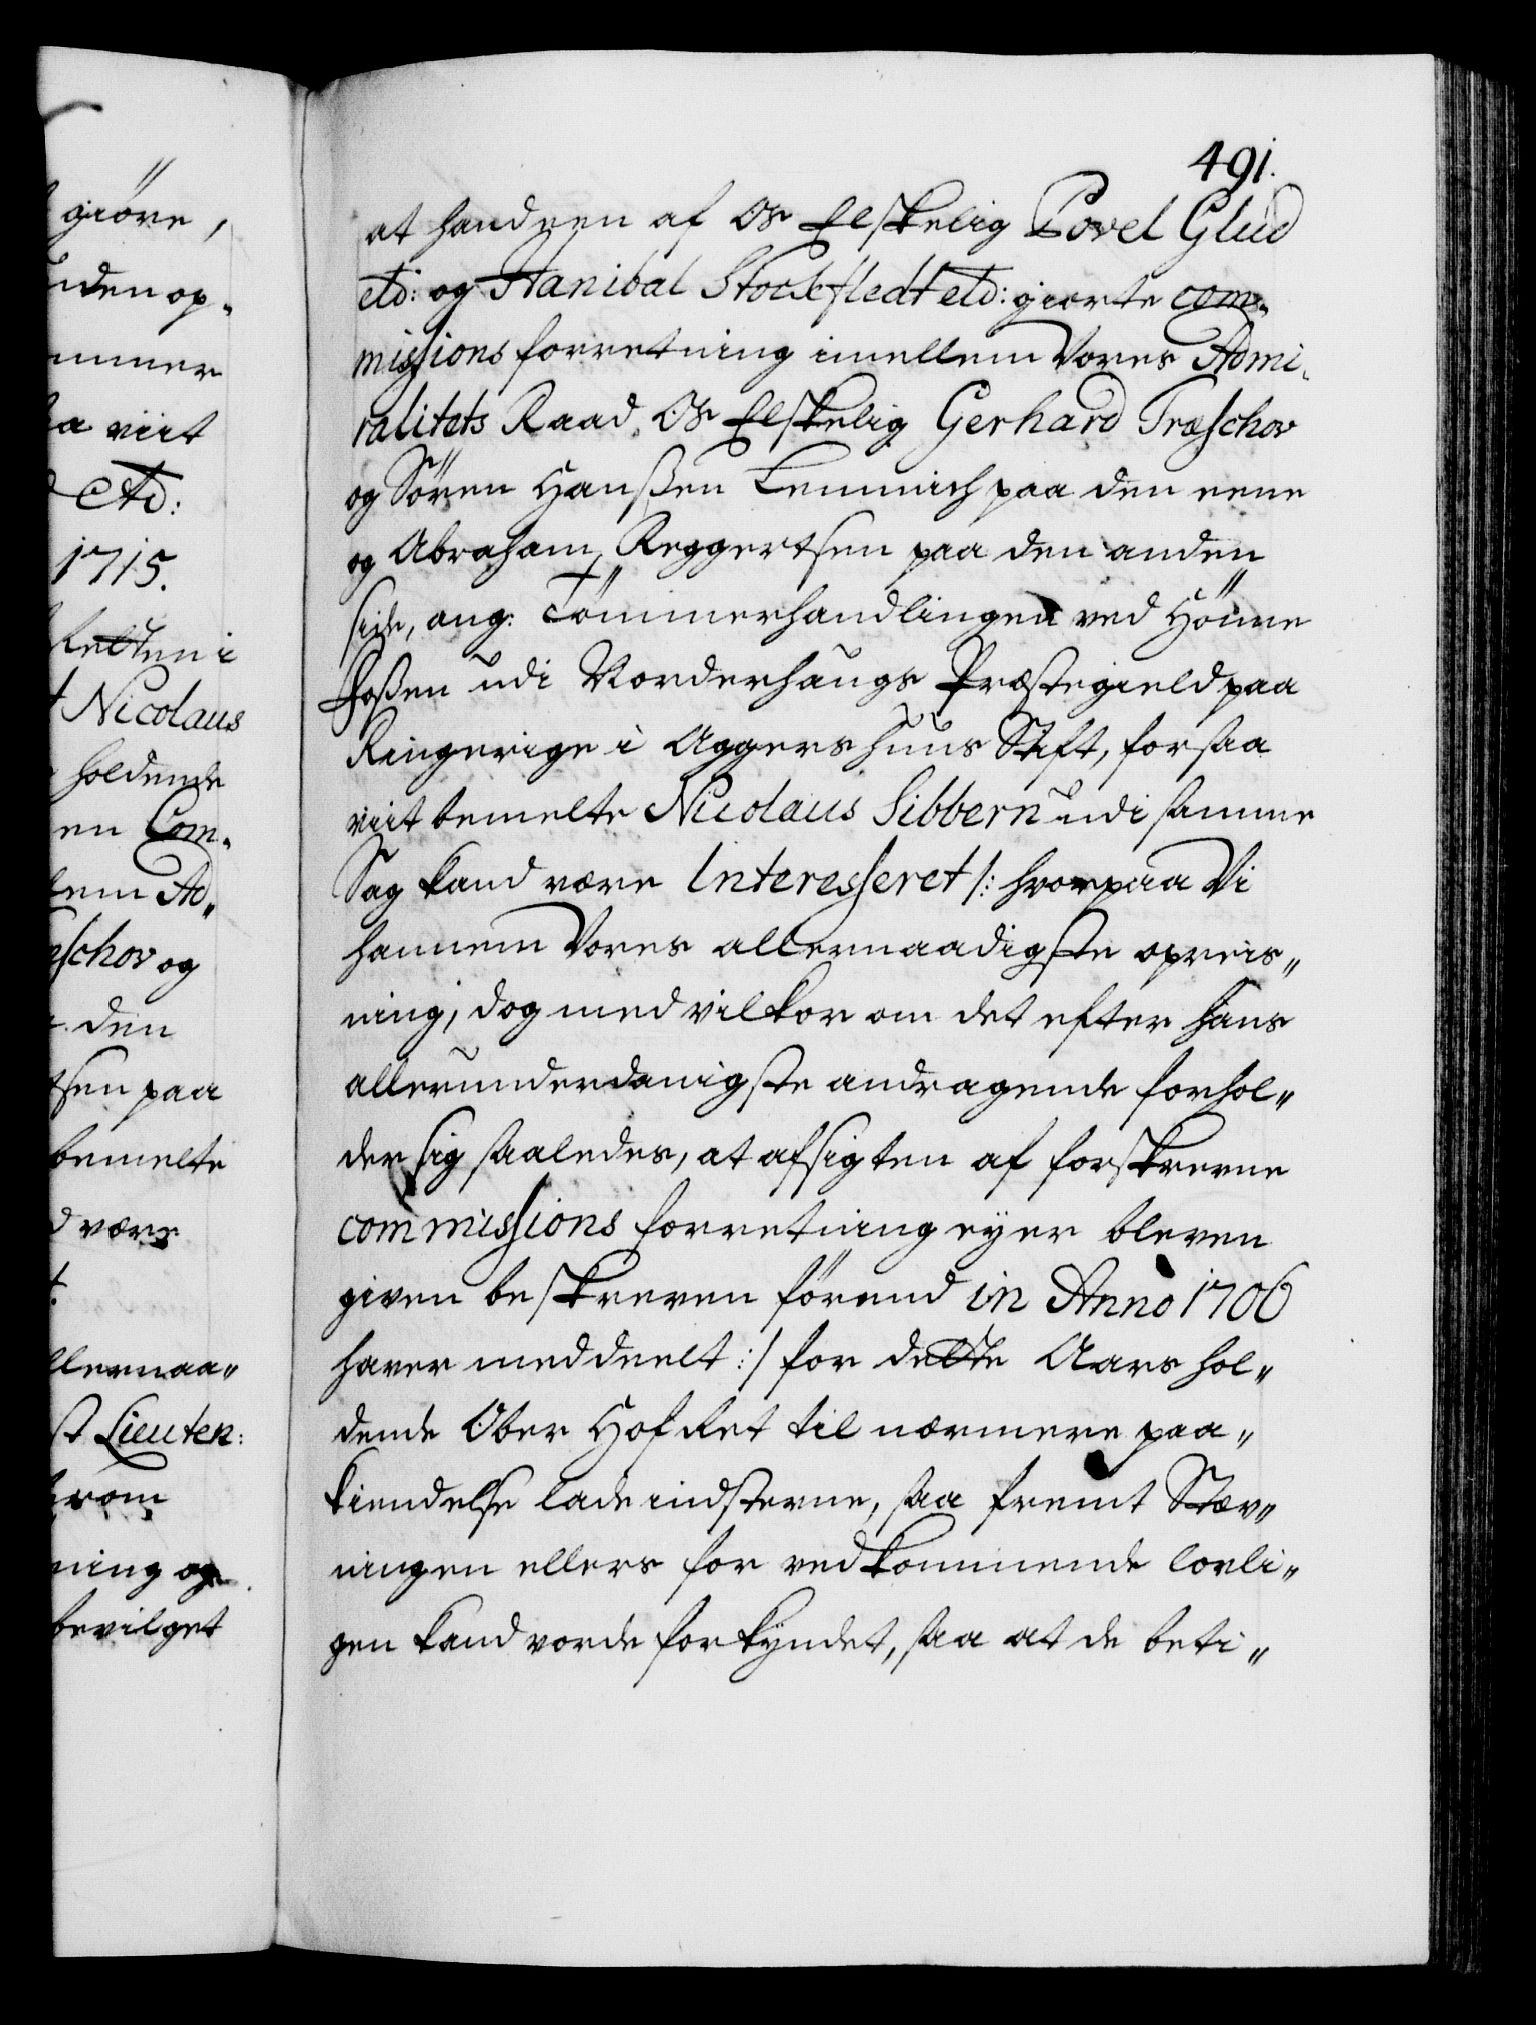 491.
giöre,
uden op-
ommer
saa viit
Etd:
1715.
Retten i
Nicolaus
holdende
en Com-
lem Ad-
æschov og
den
tsen paa
bemelte
d være
llernaa-
st Lieuten:
hvorom
ning og
bevilget
at handeen af Os Elskelig Povel Glud
etd: og Hanibal Stockfledt etd: giorte com-
missions forretning imellem Vores Admi-
ralitets Raad Os Elskelig Gerhard Træschov
og Sören Hanßen Lemmich paa den eene
og Abraham Reggertsen paa den anden
side, ang: Tömmerhandlingen ved Hönne
Foßen udi Norderhaugs Præstegield paa
Ringerige i Aggershuus Stift, forsaa
viit bemelte Nicolaus Sibbern udi samme
Sag kand være Interesseret /: hvorpaa Vi
hannem Vores allernaadigste opreis-
ning, dog med vilkor om det efter hans
allerunderdanigste andragende forhol-
der sig saaledes, at afsigten af forskrevne
commissions forretning eyer bleven
given beskreven förend in Anno 1706
haver meddeelt :/ for dette Aars hol-
dende Ober Hof Ret til nærmere paa-
kiendelse lade indstevne, saa fremt Stæv-
ningen ellers for vedkommende lovli-
gen kand vorde forkyndet, saa at de beti-